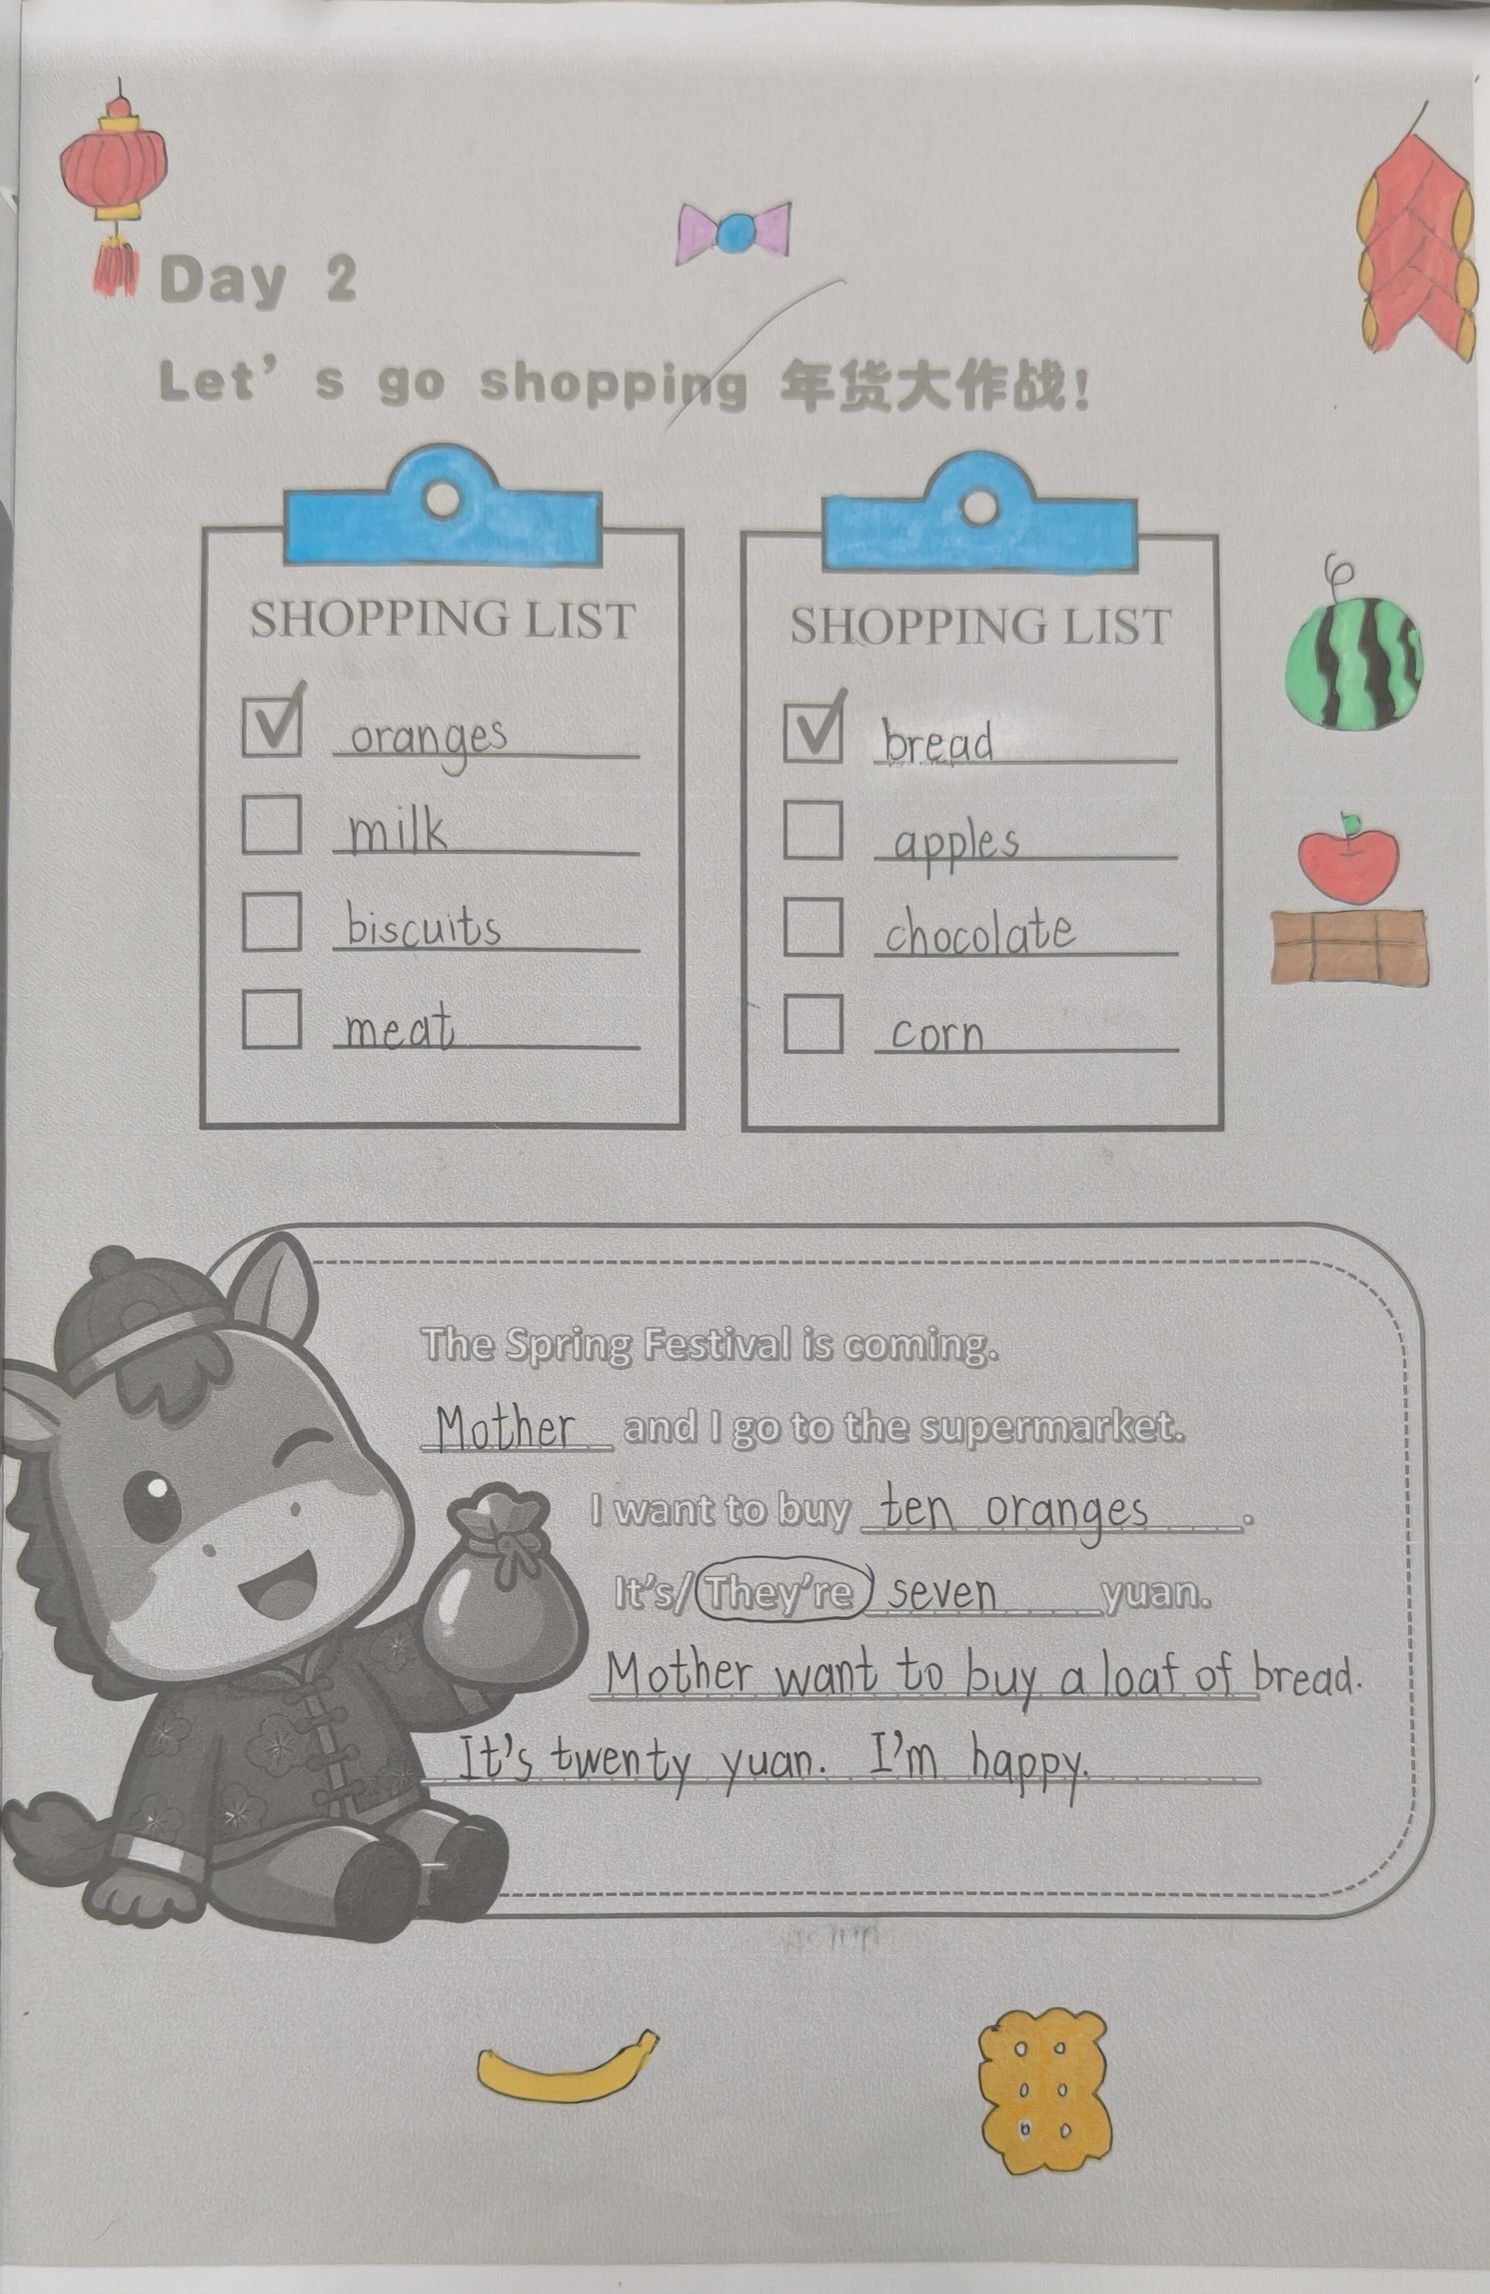 Day 2
Let's go shopping 年货大作战!
SHOPPING LIST
oranges
milk
biscuits
meat
SHOPPING LIST
bread
apples
chocolate
corn
The Spring Festival is coming.
Mother and I go to the supermarket.
I want to buy ten oranges.
It's/They're seven yuan.
Mother want to buy a loaf of bread.
It's twenty yuan. I'm happy.